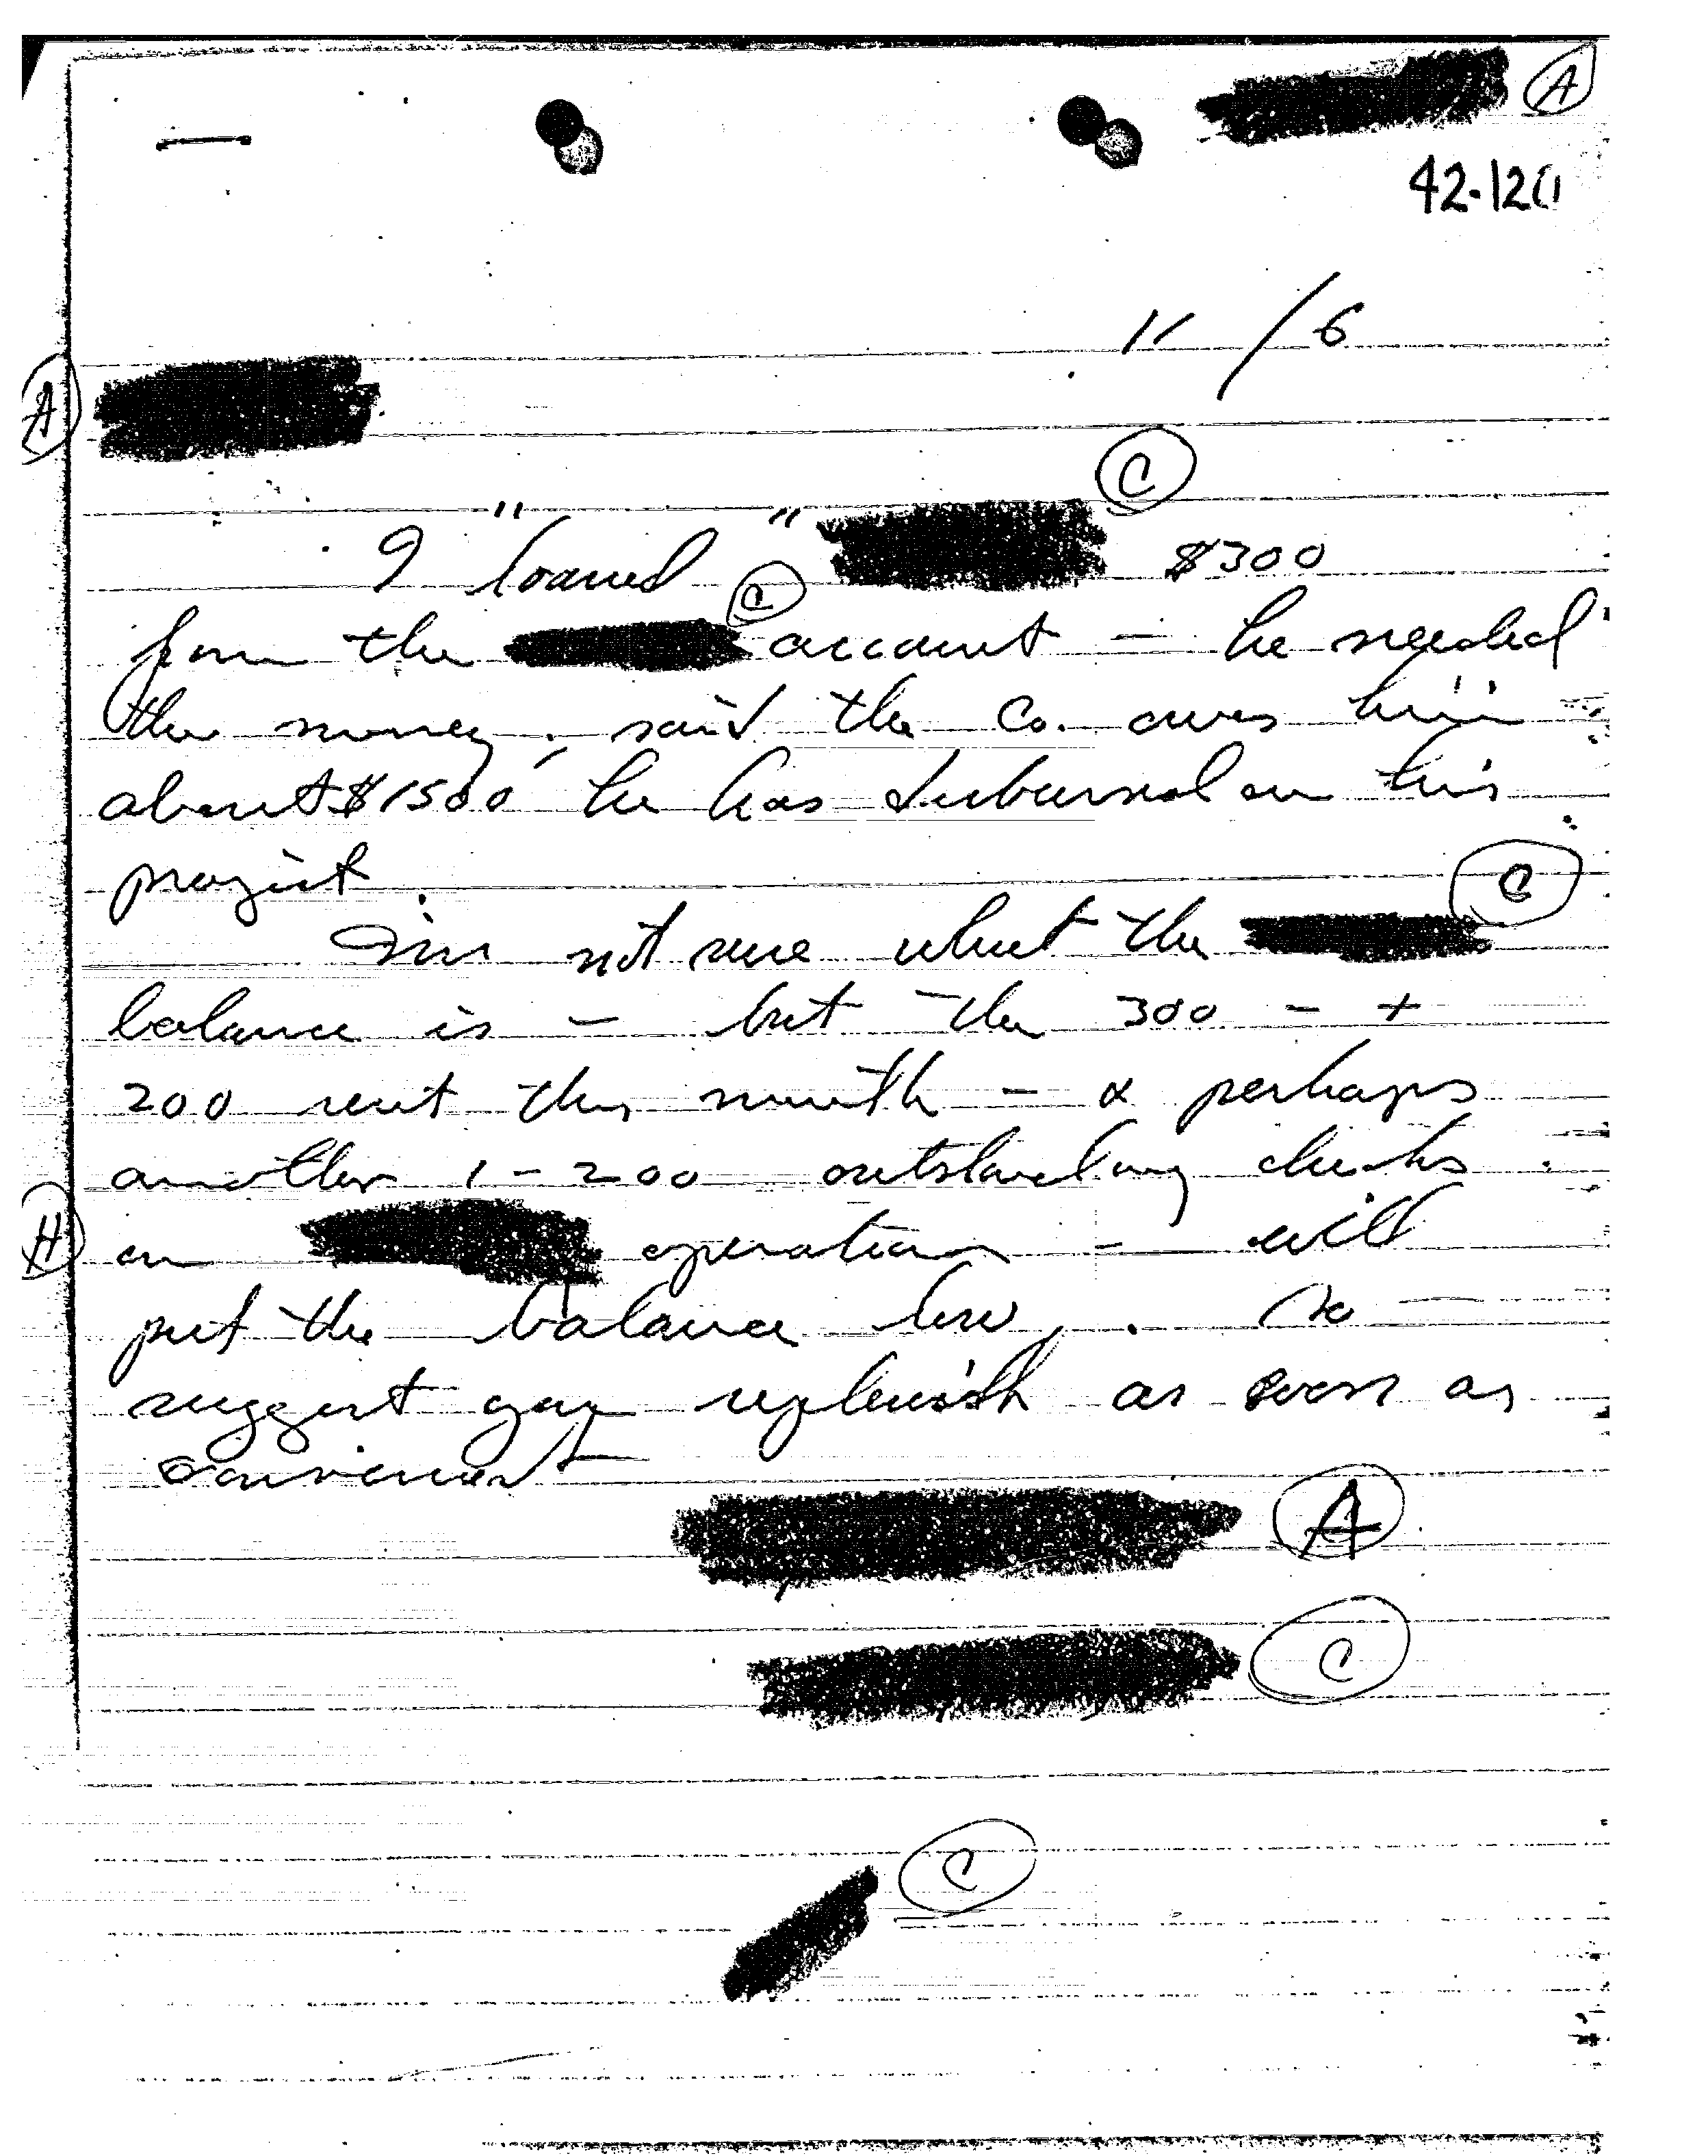 A
42-120
11/6
A
C
I "loaned" $300
C
from the account - he needed
the money; said the Co. owes him
about $1500 he has disbursed on his
project.
C
I'm not sure what the
balance is - but the 300 - +
200 rent this month - & perhaps
another 1-200 outstanding checks
H
on operation - will
put the balance low. So
suggest you replenish as soon as
convenient
A
C
C